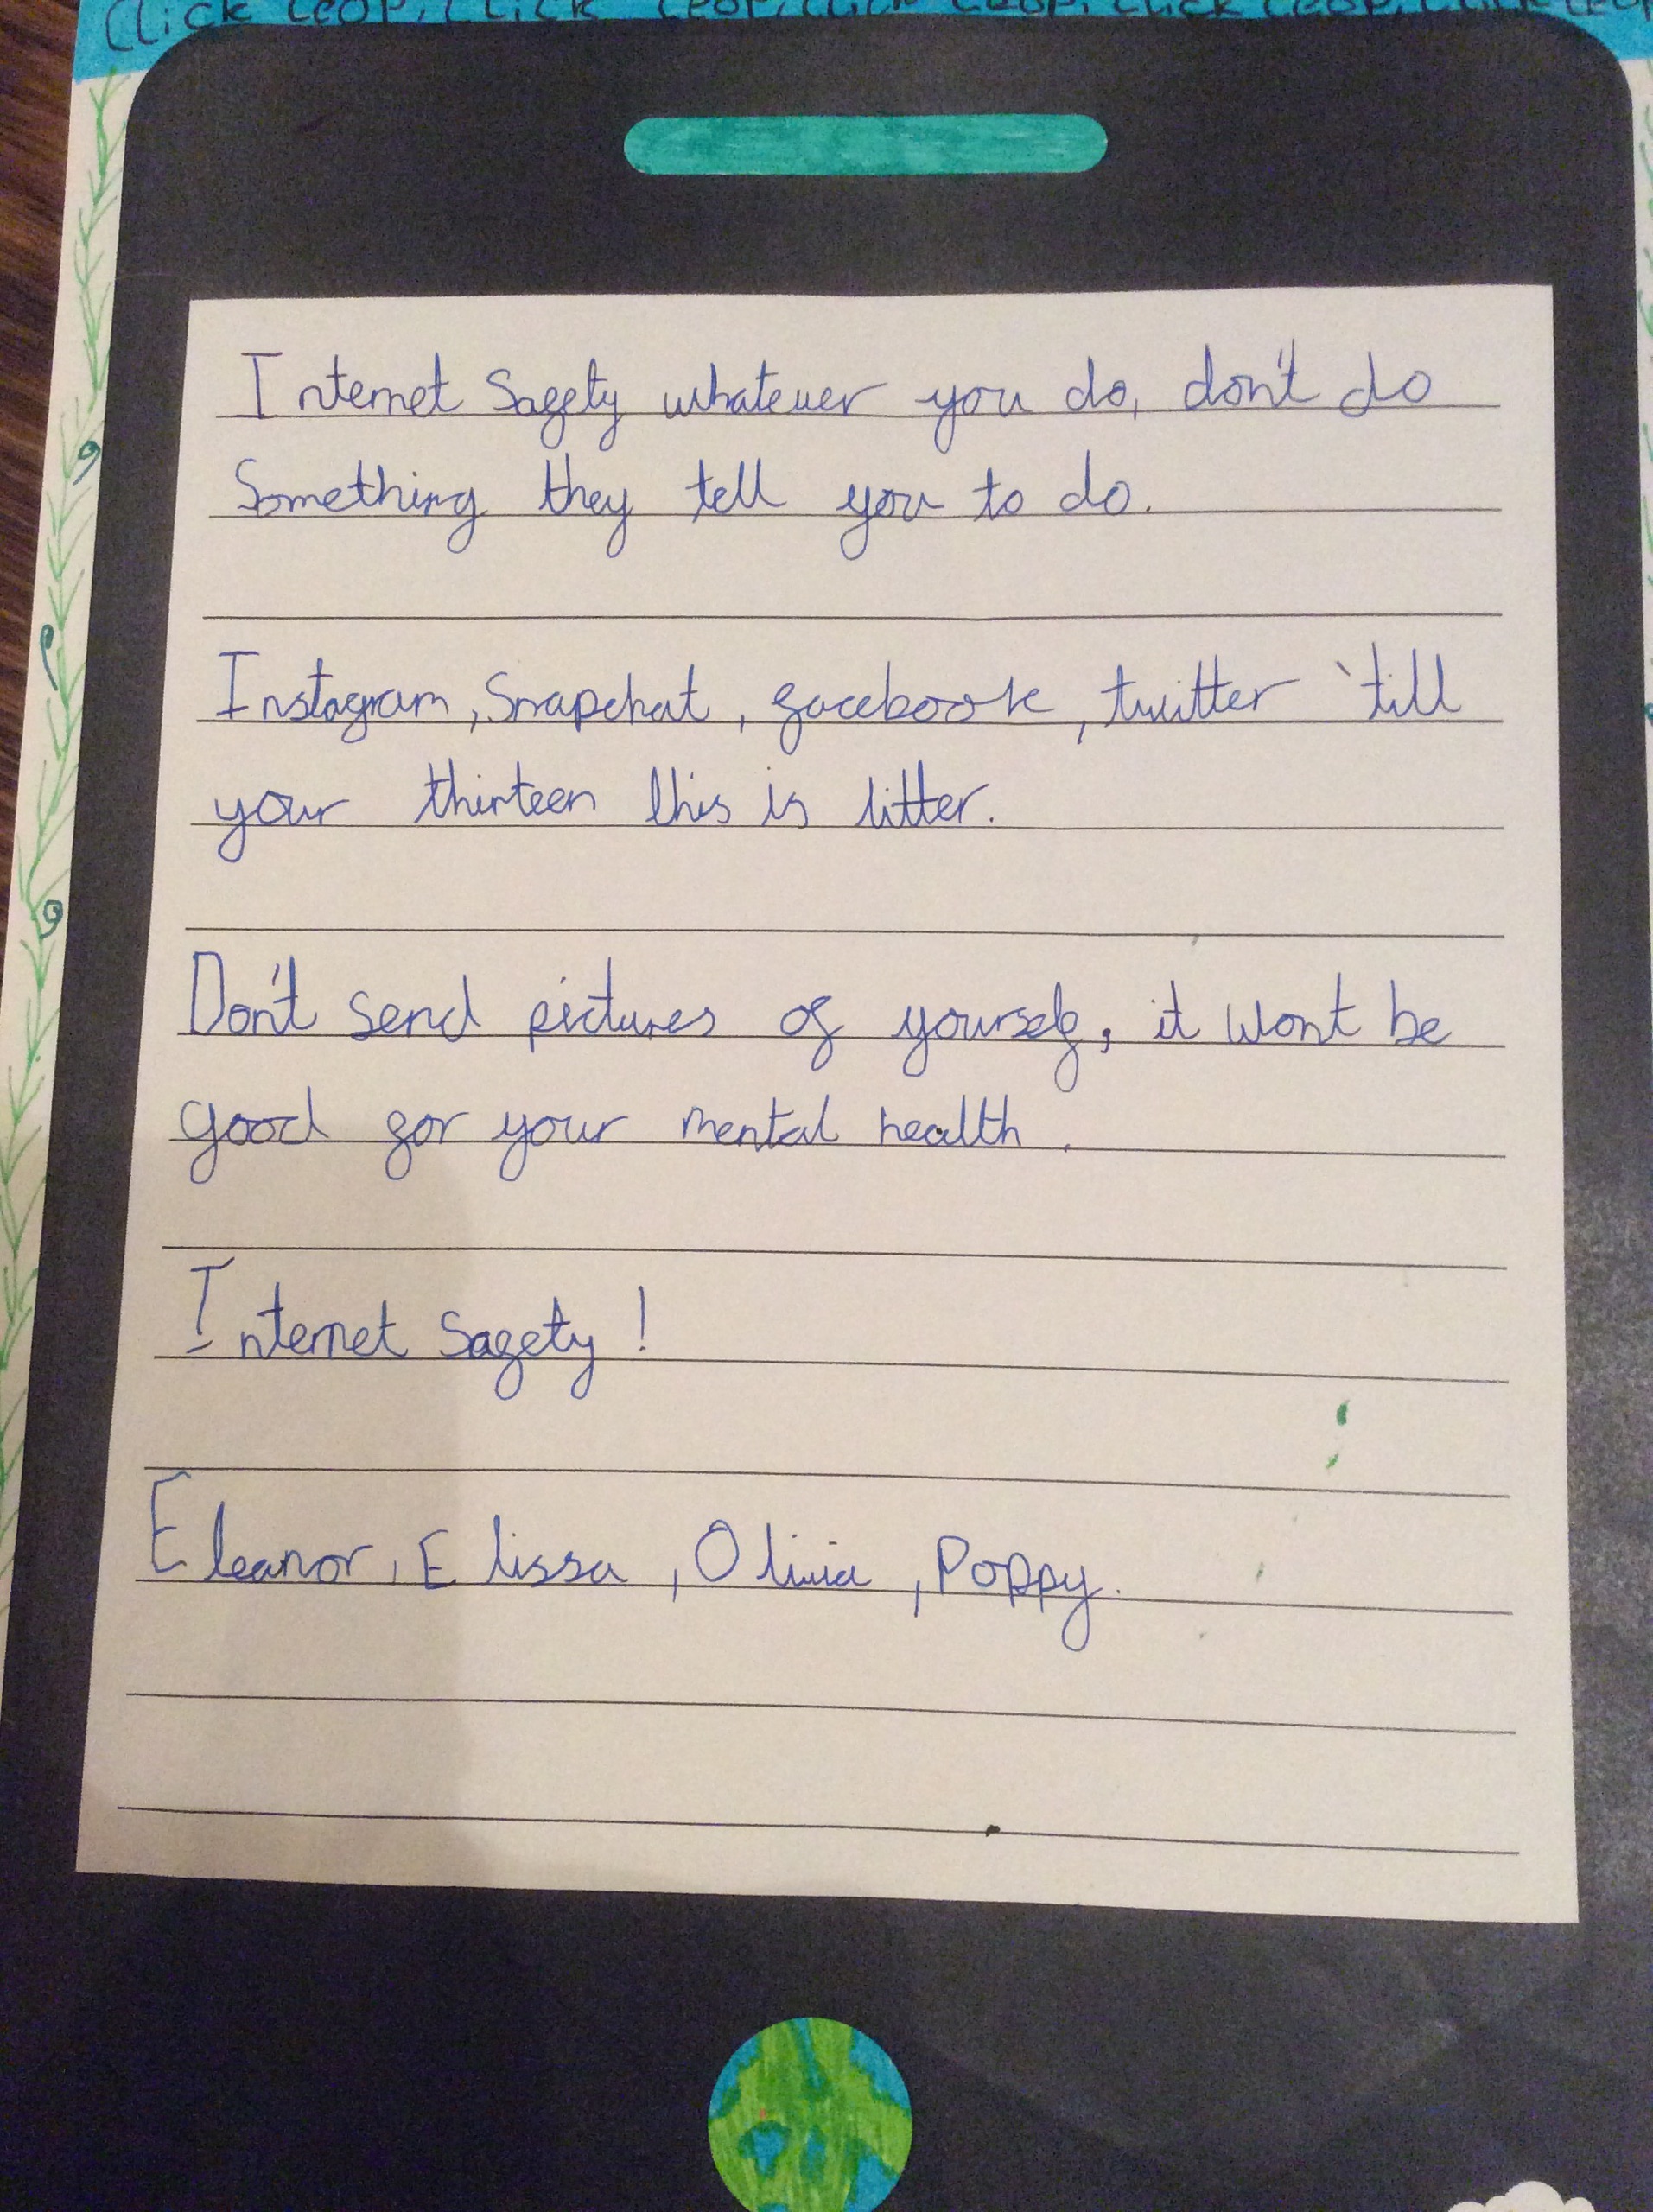 Click CEOP, Click CEOP, Click CEOP, Click CEOP, Click CEOP
Internet Safety whatever you do, don't do
Something they tell you to do.
Instagram, Snapchat, facebook, twitter 'till
your thirteen this is litter.
Don't send pictures of yourself, it wont be
good for your mental health.
Internet safety!
Eleanor, Elissa, Olivia, Poppy.